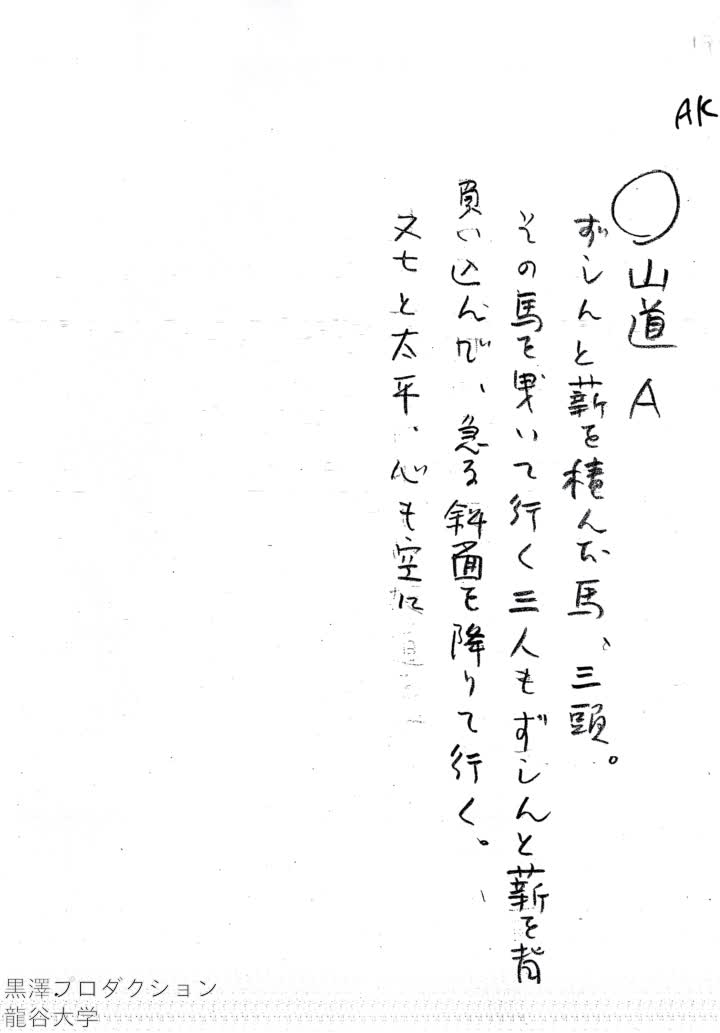 AK
○山道 A
ずしんと薪を積んだ馬、三頭。
その馬を曳いて行く三人もずしんと薪を背
負い込んで、急な斜面を降りて行く。
又七と太平、心も空に
黒澤プロダクション
龍谷大学